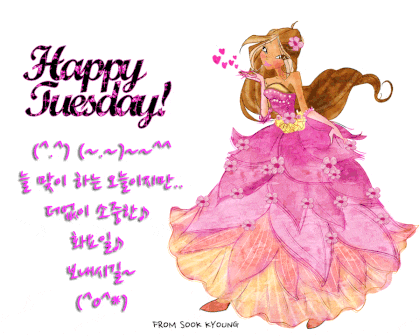 Happy
Tuesday!
(^.^) (~.~)~~^^
늘 맞이 하는 오늘이지만..
더없이 소중한♪
화요일♪
보내시길~
(^o^*)
FROM SOOK KYOUNG